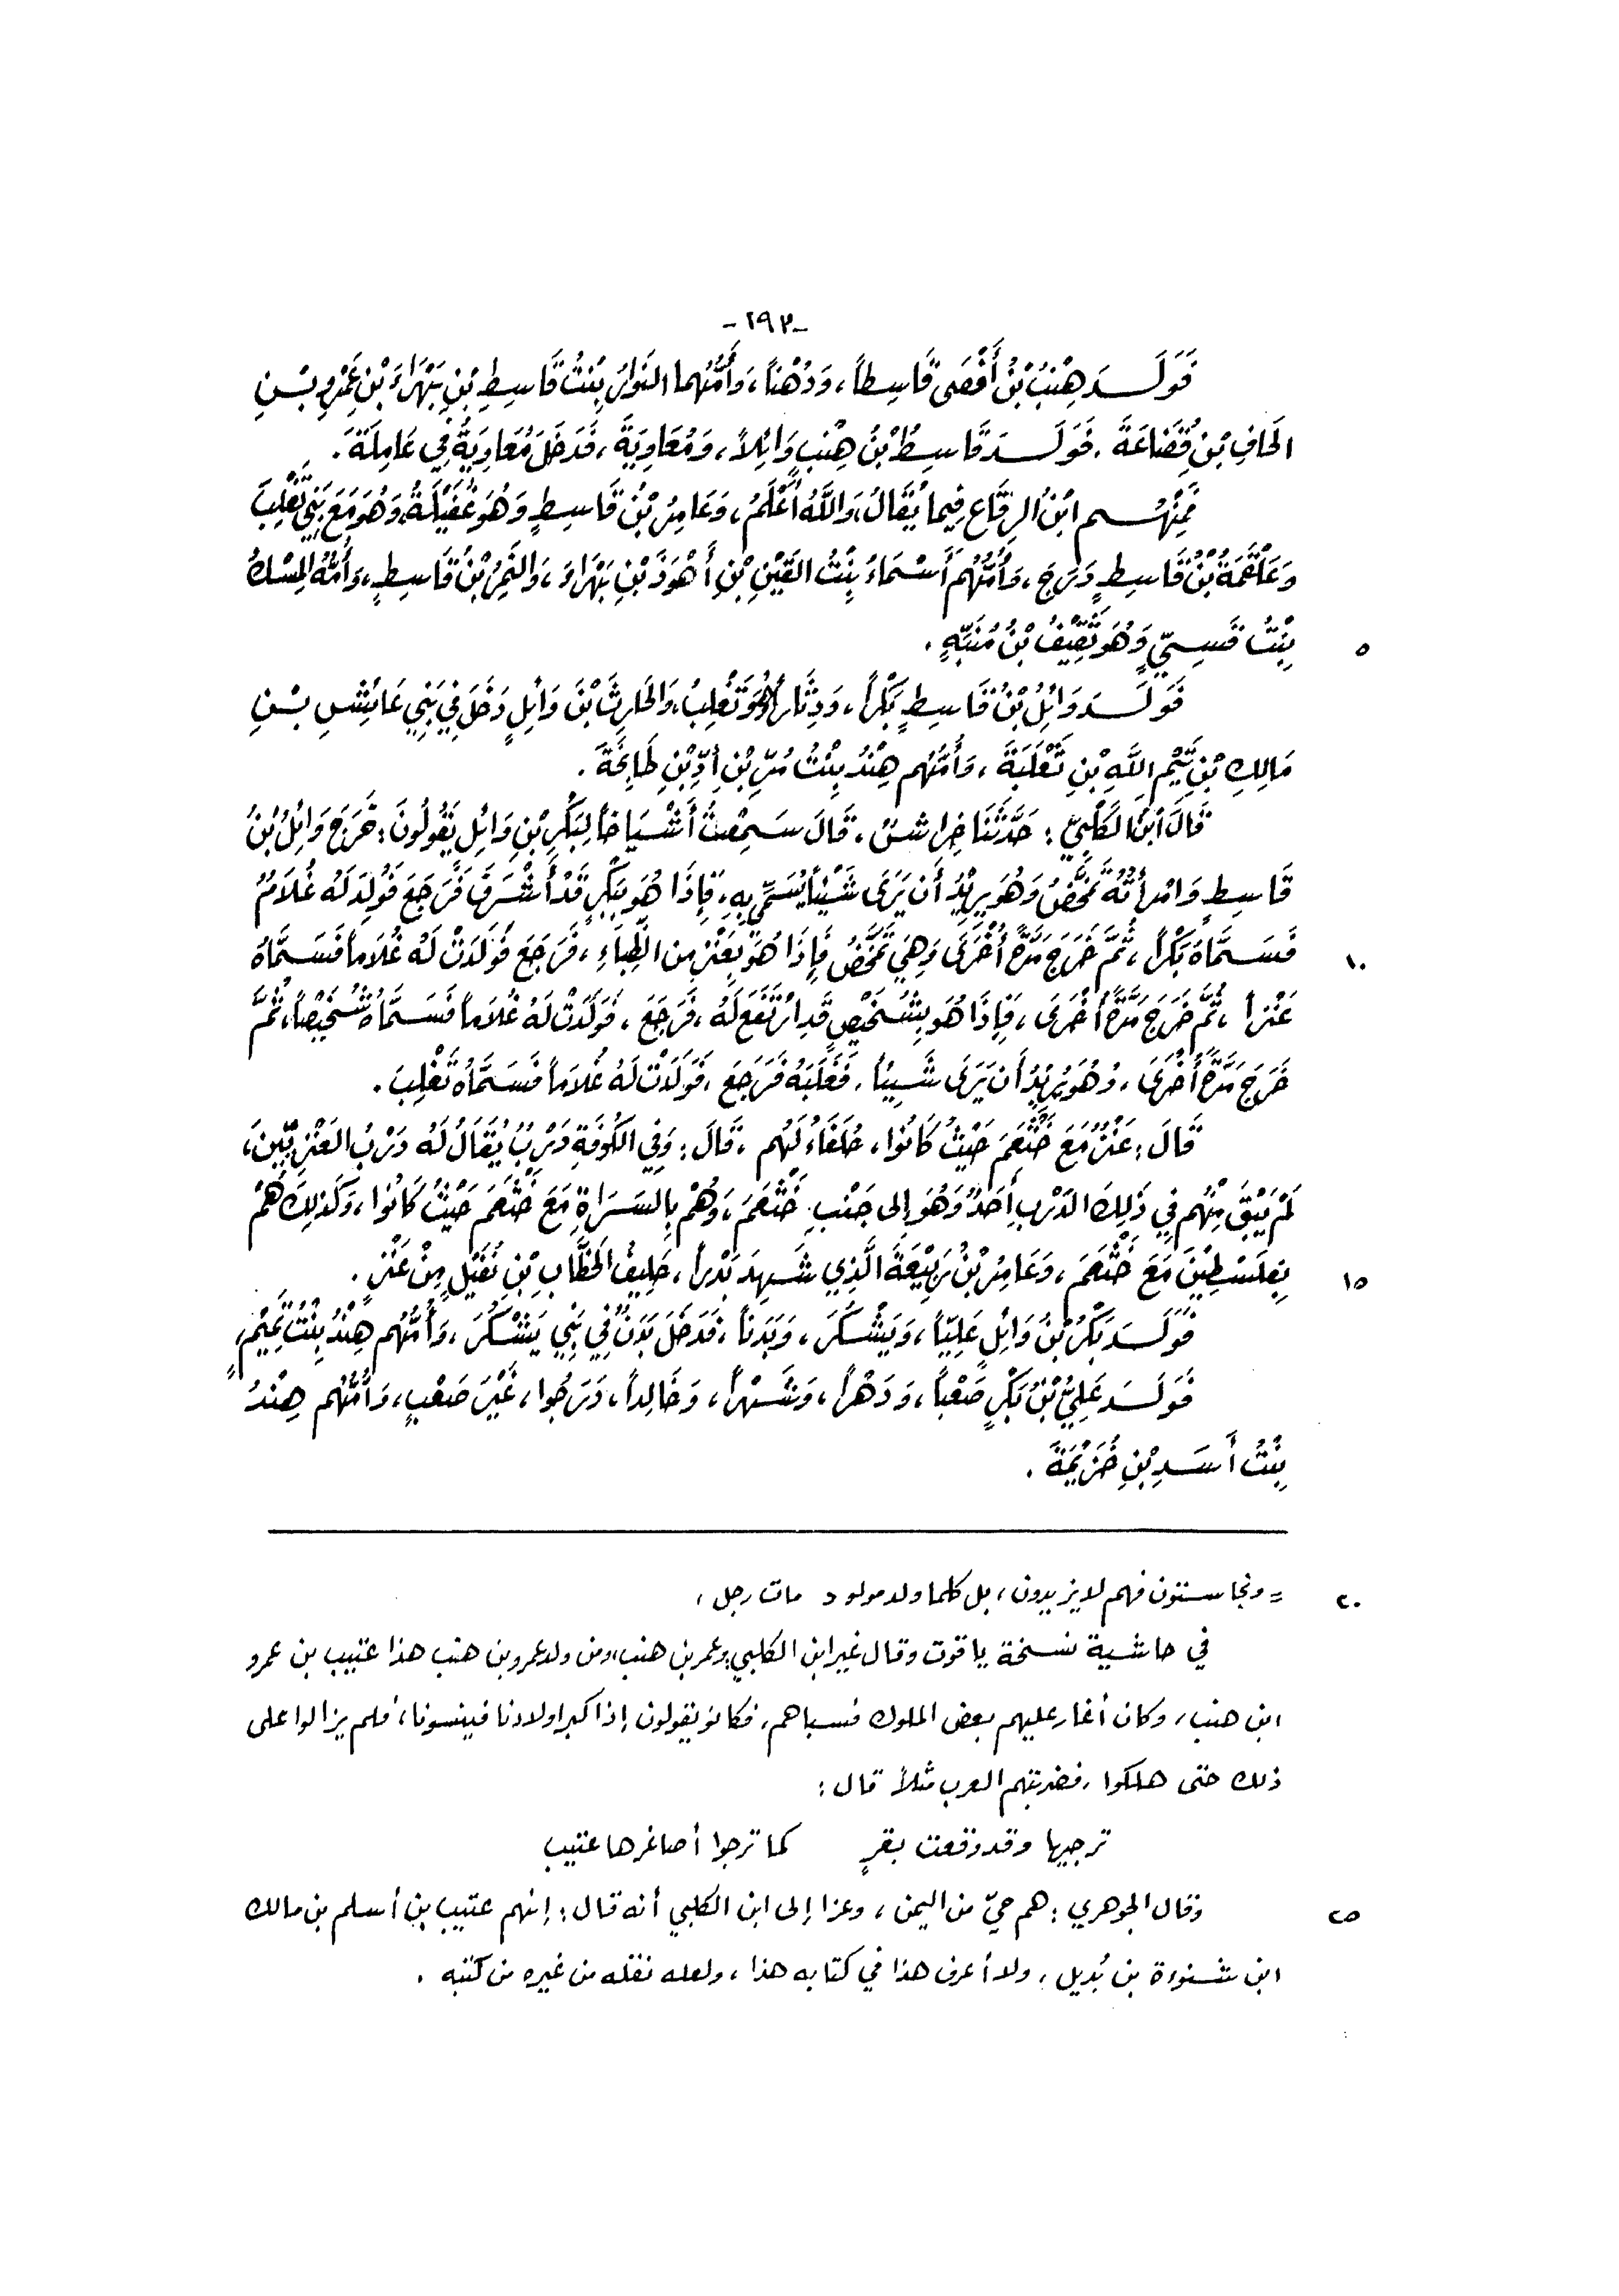 -٢٩٢-
فَوَلَــدَ هِنْبُ بْنُ أَفْصَى قَاسِطاً، وَدُهْناً، وَأُمُّهُما النَوَارُ بِنْتُ قَاسِطِ بْنِ بَهْرَاءَ بْنِ عَمْرِو بْــنِ
الحَافِ بْنِ قُضَاعَةَ. فَوَلَــدَ قَاسِطُ بْنُ هِنْبٍ وَائِلاً، وَمُعَاوِيَةَ، فَدَخَلَ مُعَاوِيَةُ فِي عَامِلَةَ.
فَمِنْهُــم ابْنُ الرِقَاعِ فِيما يُقَالُ، وَاللَّهُ أَعْلَمُ، وَعَامِرُ بْنُ قَاسِطٍ وَهُوَ غُفَيْلَةُ، وَهُوَ مَعَ بَنِي تَغْلِبَ
وَعَلْقَمَةُ بْنُ قَاسِطٍ دَرَجَ، وَأُمُّهُم أَسْمَاءُ بِنْتُ القَيْنِ بْنِ أَهْوَدَ بْنِ بَهْرَاءَ، وَالنَّمِرُ بْنُ قَاسِطٍ، وَأُمُّهُ المِسْكُ
٥ بِنْتُ قَسِيٍّ وَهُوَ ثَقِيفُ بْنُ مُنَبِّهٍ.
فَوَلَــدَ وَائِلُ بْنُ قَاسِطٍ بَكْراً، وَدِثَاراً وَهُوَ تَغْلِبُ، وَالحَارِثَ بْنَ وَائِلٍ دَخَلَ فِي بَنِي عَائِشِ بْــنِ
مَالِكِ بْنِ تَيْمِ اللَّهِ بْنِ ثَعْلَبَةَ، وَأُمُّهُم هِنْدُ بِنْتُ مُرِّ بْنِ أُدِّ بْنِ طَابِخَةَ.
قَالَ ابْنُ الكَلْبِيِّ: حَدَّثَنَا خِرَاشٌ، قَالَ سَمِعْتُ أَشْيَاخاً لِبَكْرِ بْنِ وَائِلٍ يَقُولُونَ: خَرَجَ وَائِلُ بْنُ
قَاسِطٍ وَامْرأَتُهُ تَمَخَّضُ وَهُوَ يرِيْدُ أَن يَرَى شَيْئاً يُسَمِّي بِهِ، فَإِذَا هُوَ بِبَكْرٍ قَدْ أَشْرَفَ فَرَجَعَ فَوُلِدَ لَهُ غُلَامٌ
١٠ فَسَــمَّاهُ بَكْراً، ثُمَّ خَرَجَ مَرَّةً أُخْرَى وَهِيَ تَمَخَّضُ فَإِذَا هُوَ بِعَنْزٍ مِن الظِّبَاءِ، فَرَجَعَ فَوَلَدَتْ لَهُ غُلَاماً فَسَمَّاهُ
عَنْزاً، ثُمَّ خَرَجَ مَرَّةً أُخْرَى، فَإِذَا هُوَ بِشُخَيْصٍ قَدِ ارْتَفَعَ لَهُ، فَرَجَعَ، فَوَلَدَتْ لَهُ غُلَاماً فَسَــمَّاهُ شُخَيْصاً، ثُمَّ
خَرَجَ مَرَّةً أُخْرَى، وَهُوَ يُرِيْدُ أَن يَرَى شَيْئاً، فَغَلَبَهُ فَرَجَعَ، فَوَلَدَتْ لَهُ غُلَاماً فَسَمَّاهُ تَغْلِبَ.
قَالَ: عَنْزٌ مَعَ خَثْعَمَ حَيْثُ كَانُوا، حُلَفَاءُ لَهُم، قَالَ: وَفِي الكُوفَةِ دَرْبٌ يُقَالُ لَهُ دَرْبُ العَنْزِيِّينَ،
لَمْ يَبْقَ مِنْهُم فِي ذَلِكَ الدَّرْبِ أَحَدٌ وَهُوَ إِلى جَنْبِ خَثْعَمَ، وَهُمْ بِالسَــرَاةِ مَعَ خَثْعَمَ حَيْثُ كَانُوا، وَكَذلِكَ هُمْ
١٥ بِفِلَسْطِيْنَ مَعَ خَثْعَمَ، وَعَامِرُ بْنُ رَبِيْعَةَ الَّذِي شَــهِدَ بَدْراً، حَلِيفُ الخَطَّابِ بْنِ نُفَيْلٍ مِنْ عَنْزٍ.
فَوَلَــدَ بَكْرُ بْنُ وَائِلٍ عَلِيّاً، وَيَشْكُرَ، وَبَدَناً، فَدَخَلَ بَدَنٌ فِي بَنِي يَشْكُرَ، وَأُمُّهُم هِنْدُ بِنْتُ تَمِيْمٍ،
فَوَلَــدَ عَلِيُّ بْنُ بَكْرٍ صَعْباً، وَدَهْراً، وَشَــهْراً، وَخَالِداً، دَرَجُوا، غَيْرَ صَعْبٍ، وَأُمُّهُم هِنْدُ
بِنْتُ أَسَــدِ بْنِ خُزَيْمَةَ.
٢٠ = ونجا ستون فهم لايزيدون، بل كلما ولد مولود مات رجل،
في حاشية نسخة ياقوت وقال غير ابن الكلبي: وعمر بن هنب، ومن ولد عمرو بن هنب هذا عتيب بن عمرو
ابن هنب، وكان أغار عليهم بعض الملوك فسباهم، فكانو يقولون إذا كبر اولادنا فينسونا، فلم يزالوا على
ذلك حتى هلكوا، فضربتهم العرب مثلاً قال:
ترجيها وقد وقعت بقرٍ كما ترجوا أصاغرها عتيب
٢٥ وقال الجوهري: هم حيّ من اليمن، وعزا إلى ابن الكلبي أنه قال: إنهم عتيب بن أسلم بن مالك
ابن شنوءة بن بُديل، ولا أعرف هذا في كتابه هذا، ولعله نقله من غيره من كتبه.